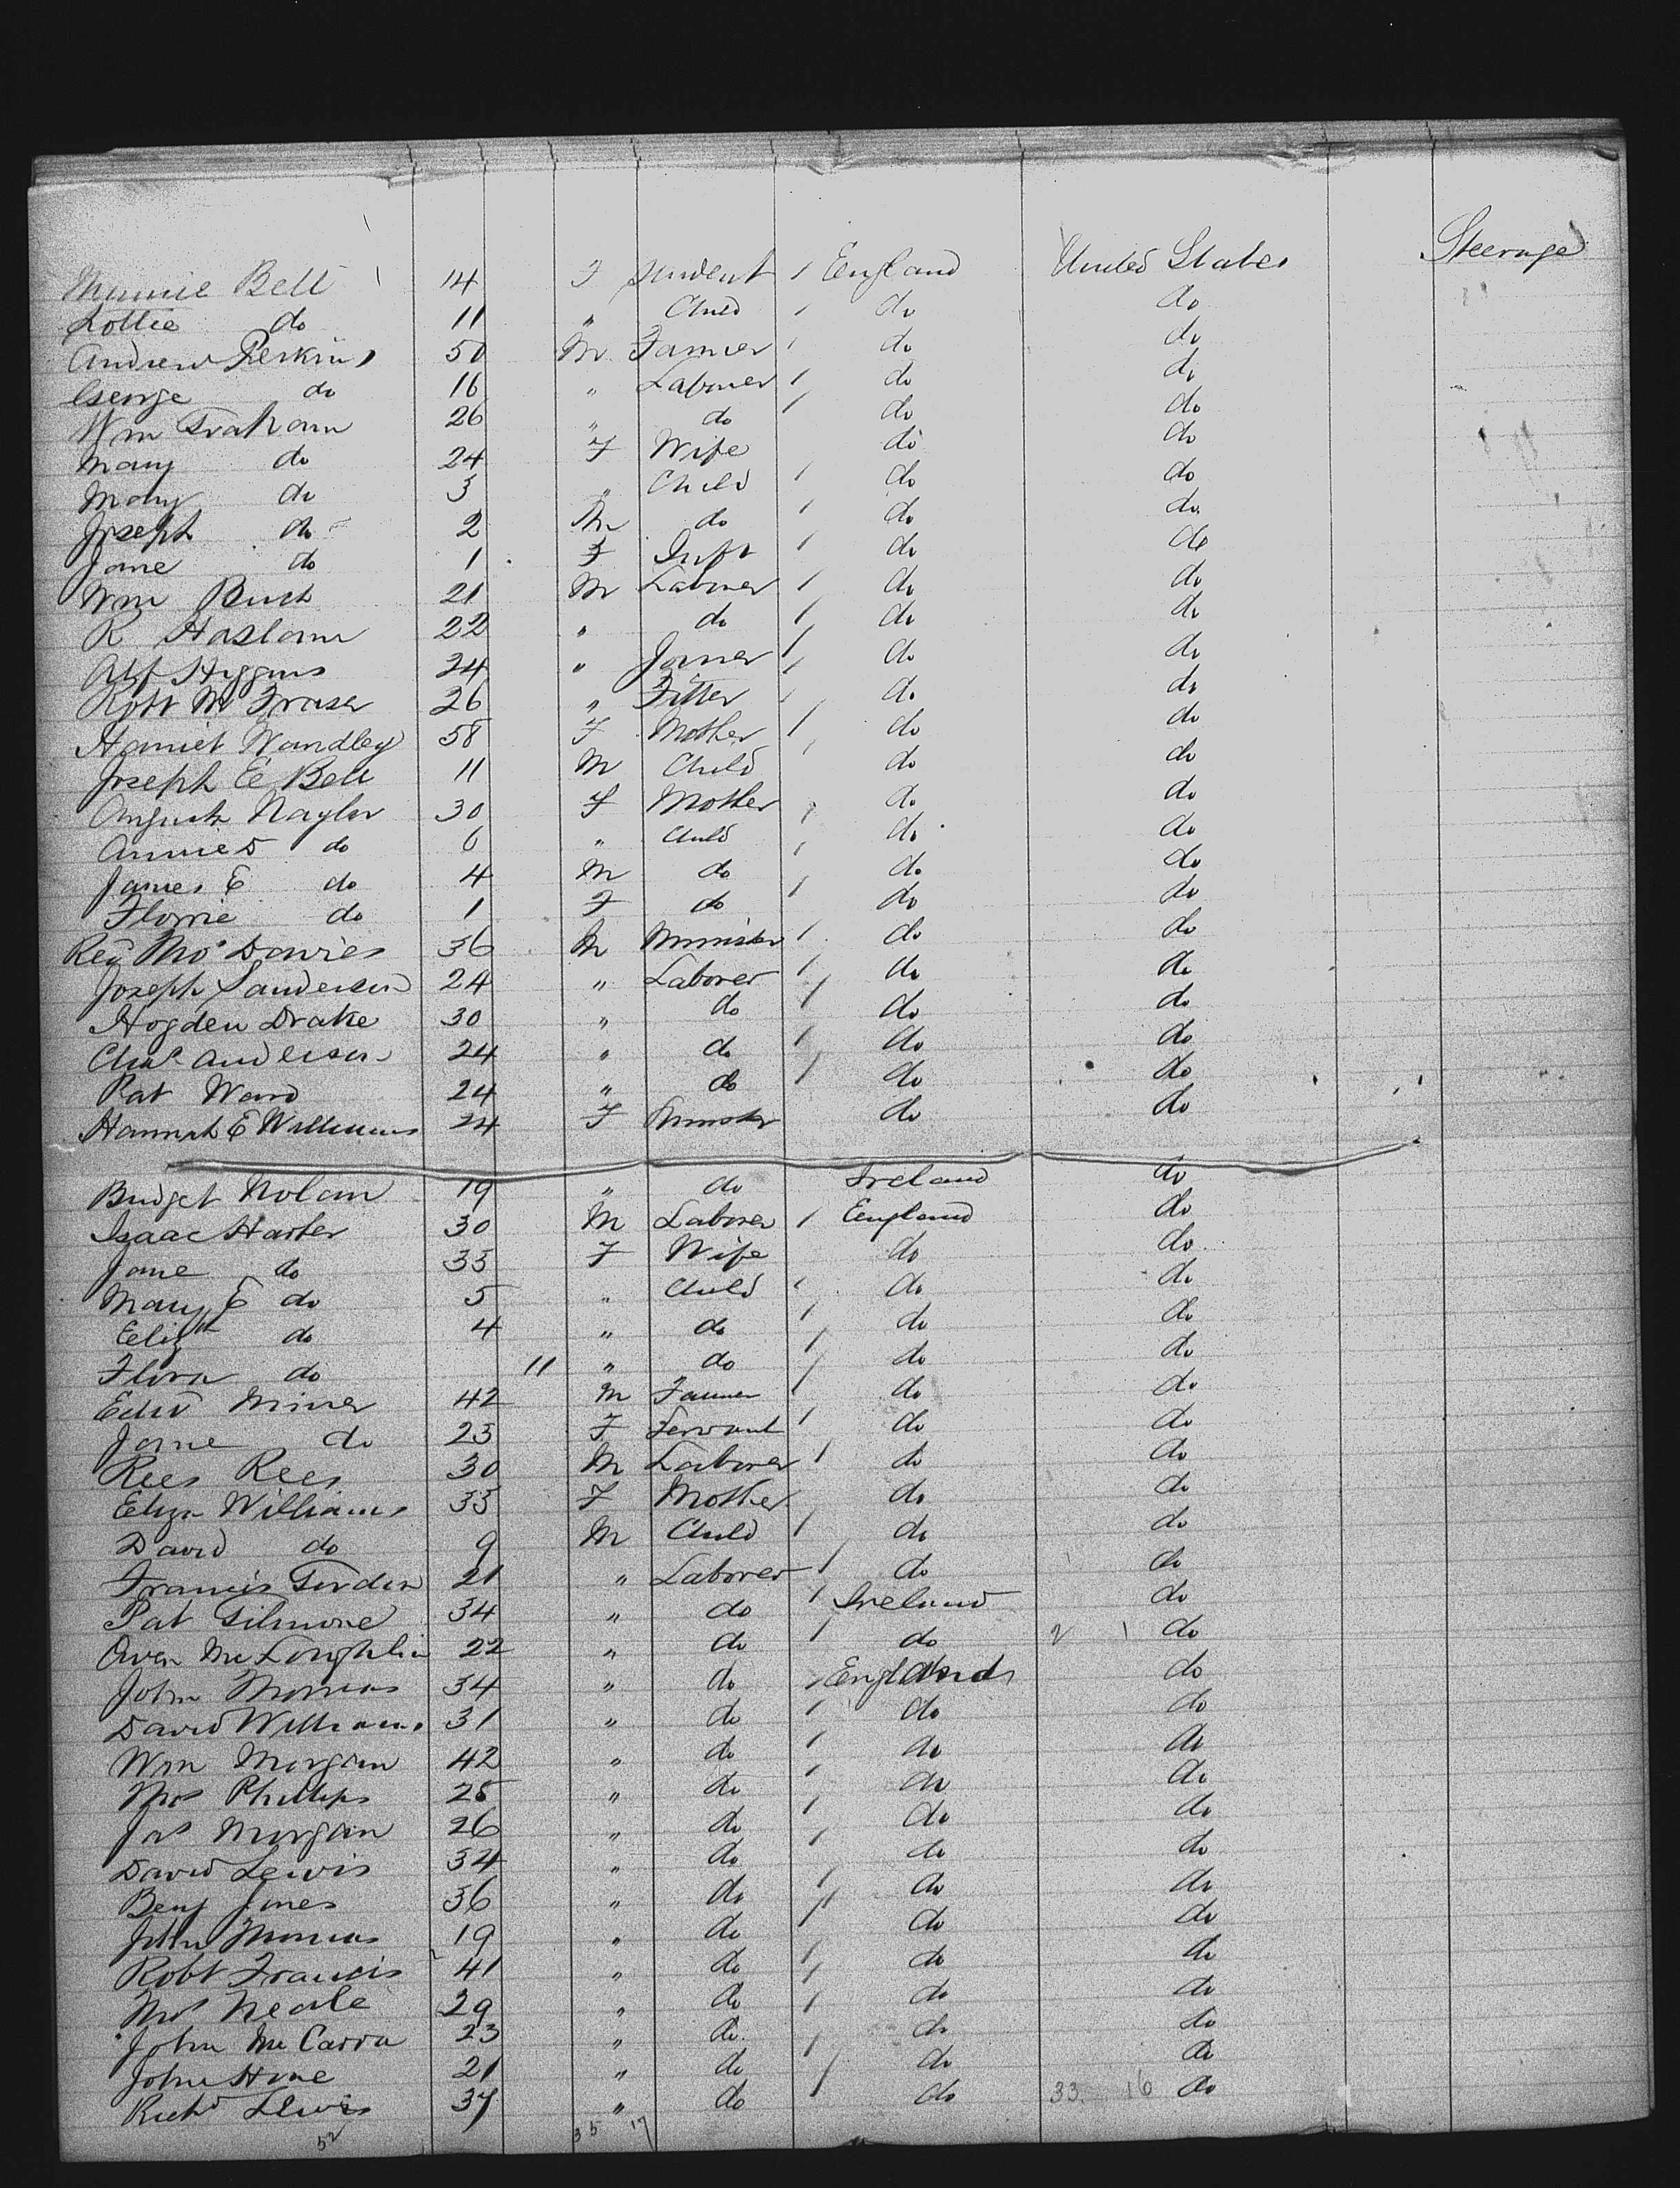 Minnie Bell 14 F Student / England United States Steerage
Lottie do 11 " Child / do do
Andrew Perkins 50 M Farmer / do do
George do 16 " Laborer / do do
Wm Graham 26 " do / do do
Mary do 24 F Wife do do
Mary do 3 " Child / do do
Joseph do 2 M do / do do
Jane do 1 F Inft / do do
Wm Buch 21 M Laborer / do do
R Haslam 22 " do / do do
Alf Higgins 24 " Joiner / do do
Robt Mc Fraser 26 " Fitter / do do
Harriet Wandley 58 F Mother / do do
Joseph E Bell 11 M Child / do do
August Naylor 30 F Mother do do
Annie S do 6 " Child / do do
James E do 4 M do / do do
Florrie do 1 F do / do do
Rev Thos Davies 36 M Minister / do do
Joseph Sanderson 24 " Laborer / do do
Hogden Drake 30 " do / do do
Chas Anderson 24 " do / do do
Pat Ward 24 " do / do do
Hannah E Williams 24 F Spinster do do
Bridget Nolan 19 " do Ireland do
Isaac Harter 30 M Laborer / England do
Jane do 33 F Wife do do
Mary E do 5 " Child / do do
Elizth do 4 " do / do do
Flora do 11 " do / do do
Edwd Miner 42 M Farmer / do do
Jane do 23 F Servant / do do
Rees Rees 30 M Laborer / do do
Eliza Williams 33 F Mother do do
David do 9 M Child / do do
Francis Gordon 21 " Laborer / do do
Pat Gilmore 34 " do / Ireland do
Owen McLoughlin 22 " do / do 2 1 do
John Thomas 34 " do / England do
David Williams 31 " do / do do
Wm Morgan 42 " do / do do
Thos Phillips 25 " do / do do
Jas Morgan 26 " do / do do
David Lewis 34 " do / do do
Benj Jones 36 " do / do do
John Thomas 19 " do / do do
Robt Francis 41 " do / do do
Thos Neale 29 " do / do do
John Mc Carra 23 " do / do do
John Hone 21 " do / do do
Richd Lewis 37 " do / do 33 16 do
52 35 17